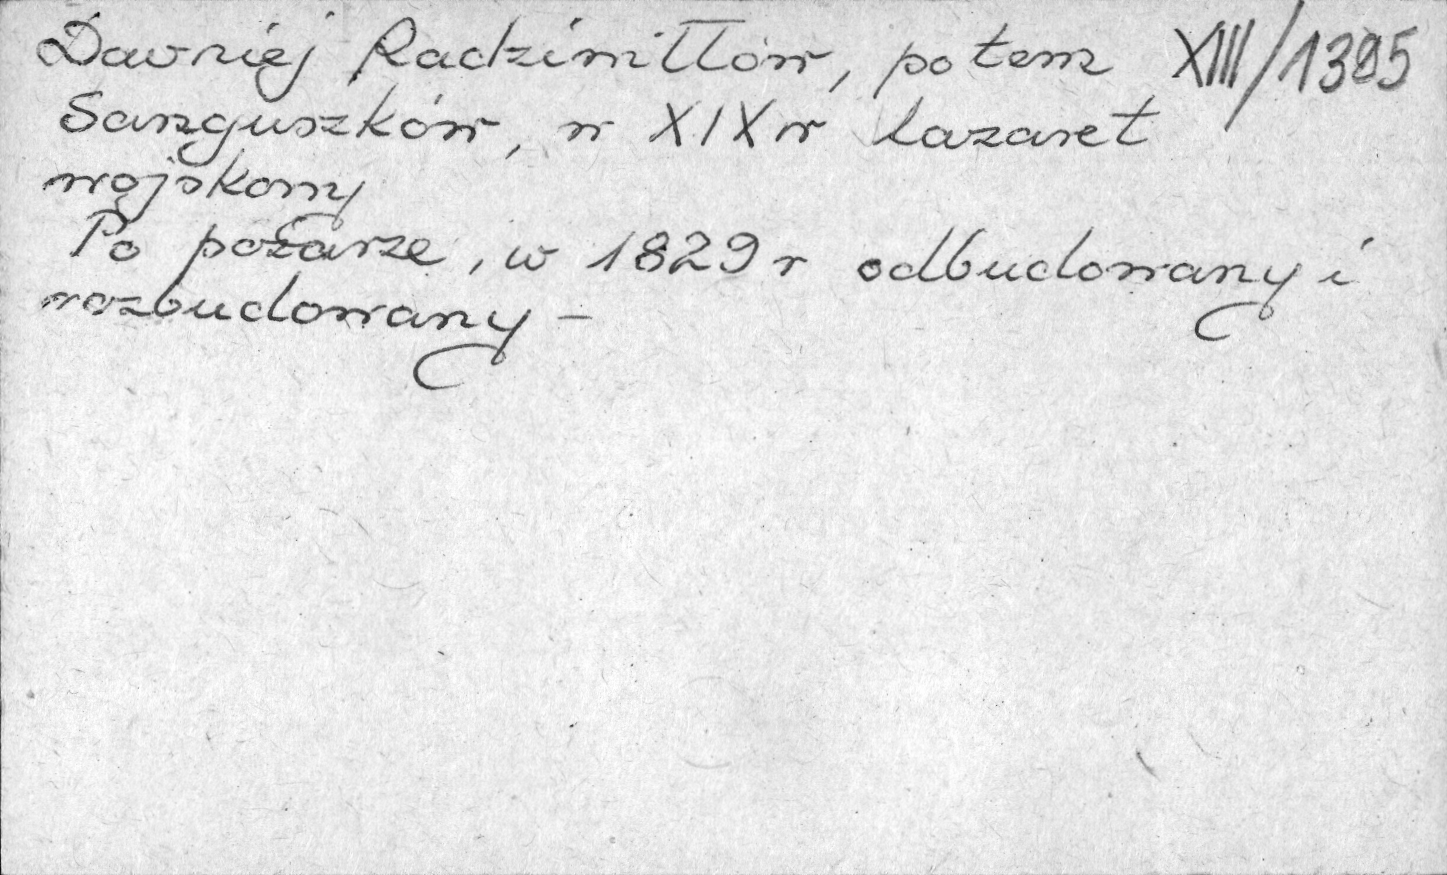 Dawniej Radziwiłłów, potem XIII/1395
Sanguszków, w XIX w lazaret
wojskowy
Po pożarze, w 1829 r odbudowany i
rozbudowany –